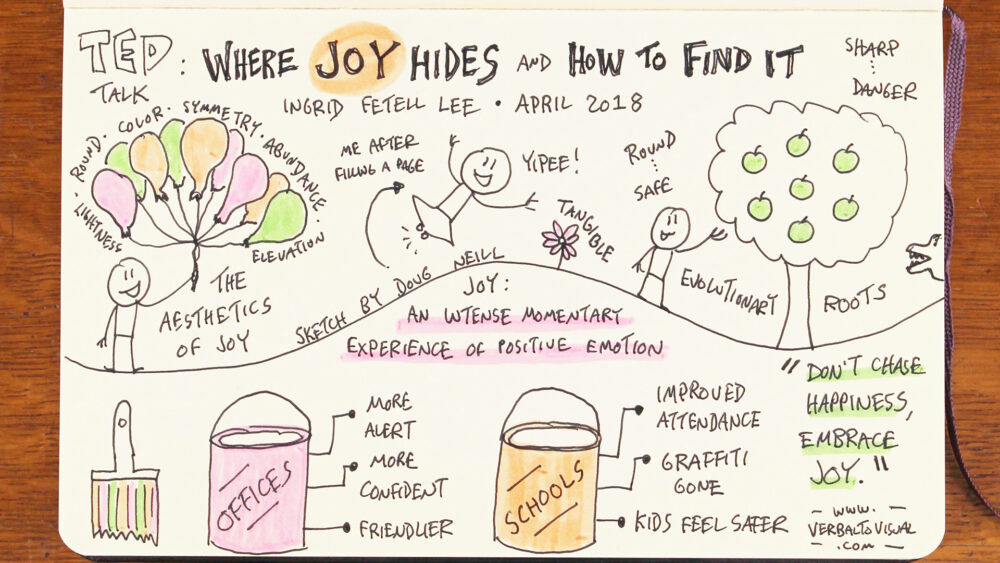 TED : WHERE JOY HIDES AND HOW TO FIND IT
TALK
INGRID FETELL LEE • APRIL 2018
SHARP
DANGER
LIGHTNESS • ROUND • COLOR • SYMMETRY • ABUNDANCE • ELEVATION
THE
AESTHETICS
OF JOY
ME AFTER
FILLING A PAGE
YIPEE!
TANGIBLE
ROUND
SAFE
EVOLUTIONARY ROOTS
SKETCH BY DOUG NEILL
JOY:
AN INTENSE MOMENTARY
EXPERIENCE OF POSITIVE EMOTION
OFFICES
MORE
ALERT
MORE
CONFIDENT
FRIENDLIER
SCHOOLS
IMPROVED
ATTENDANCE
GRAFFITI
GONE
KIDS FEEL SAFER
"DON'T CHASE
HAPPINESS,
EMBRACE
JOY."
– WWW. –
VERBALTOVISUAL
– .COM –